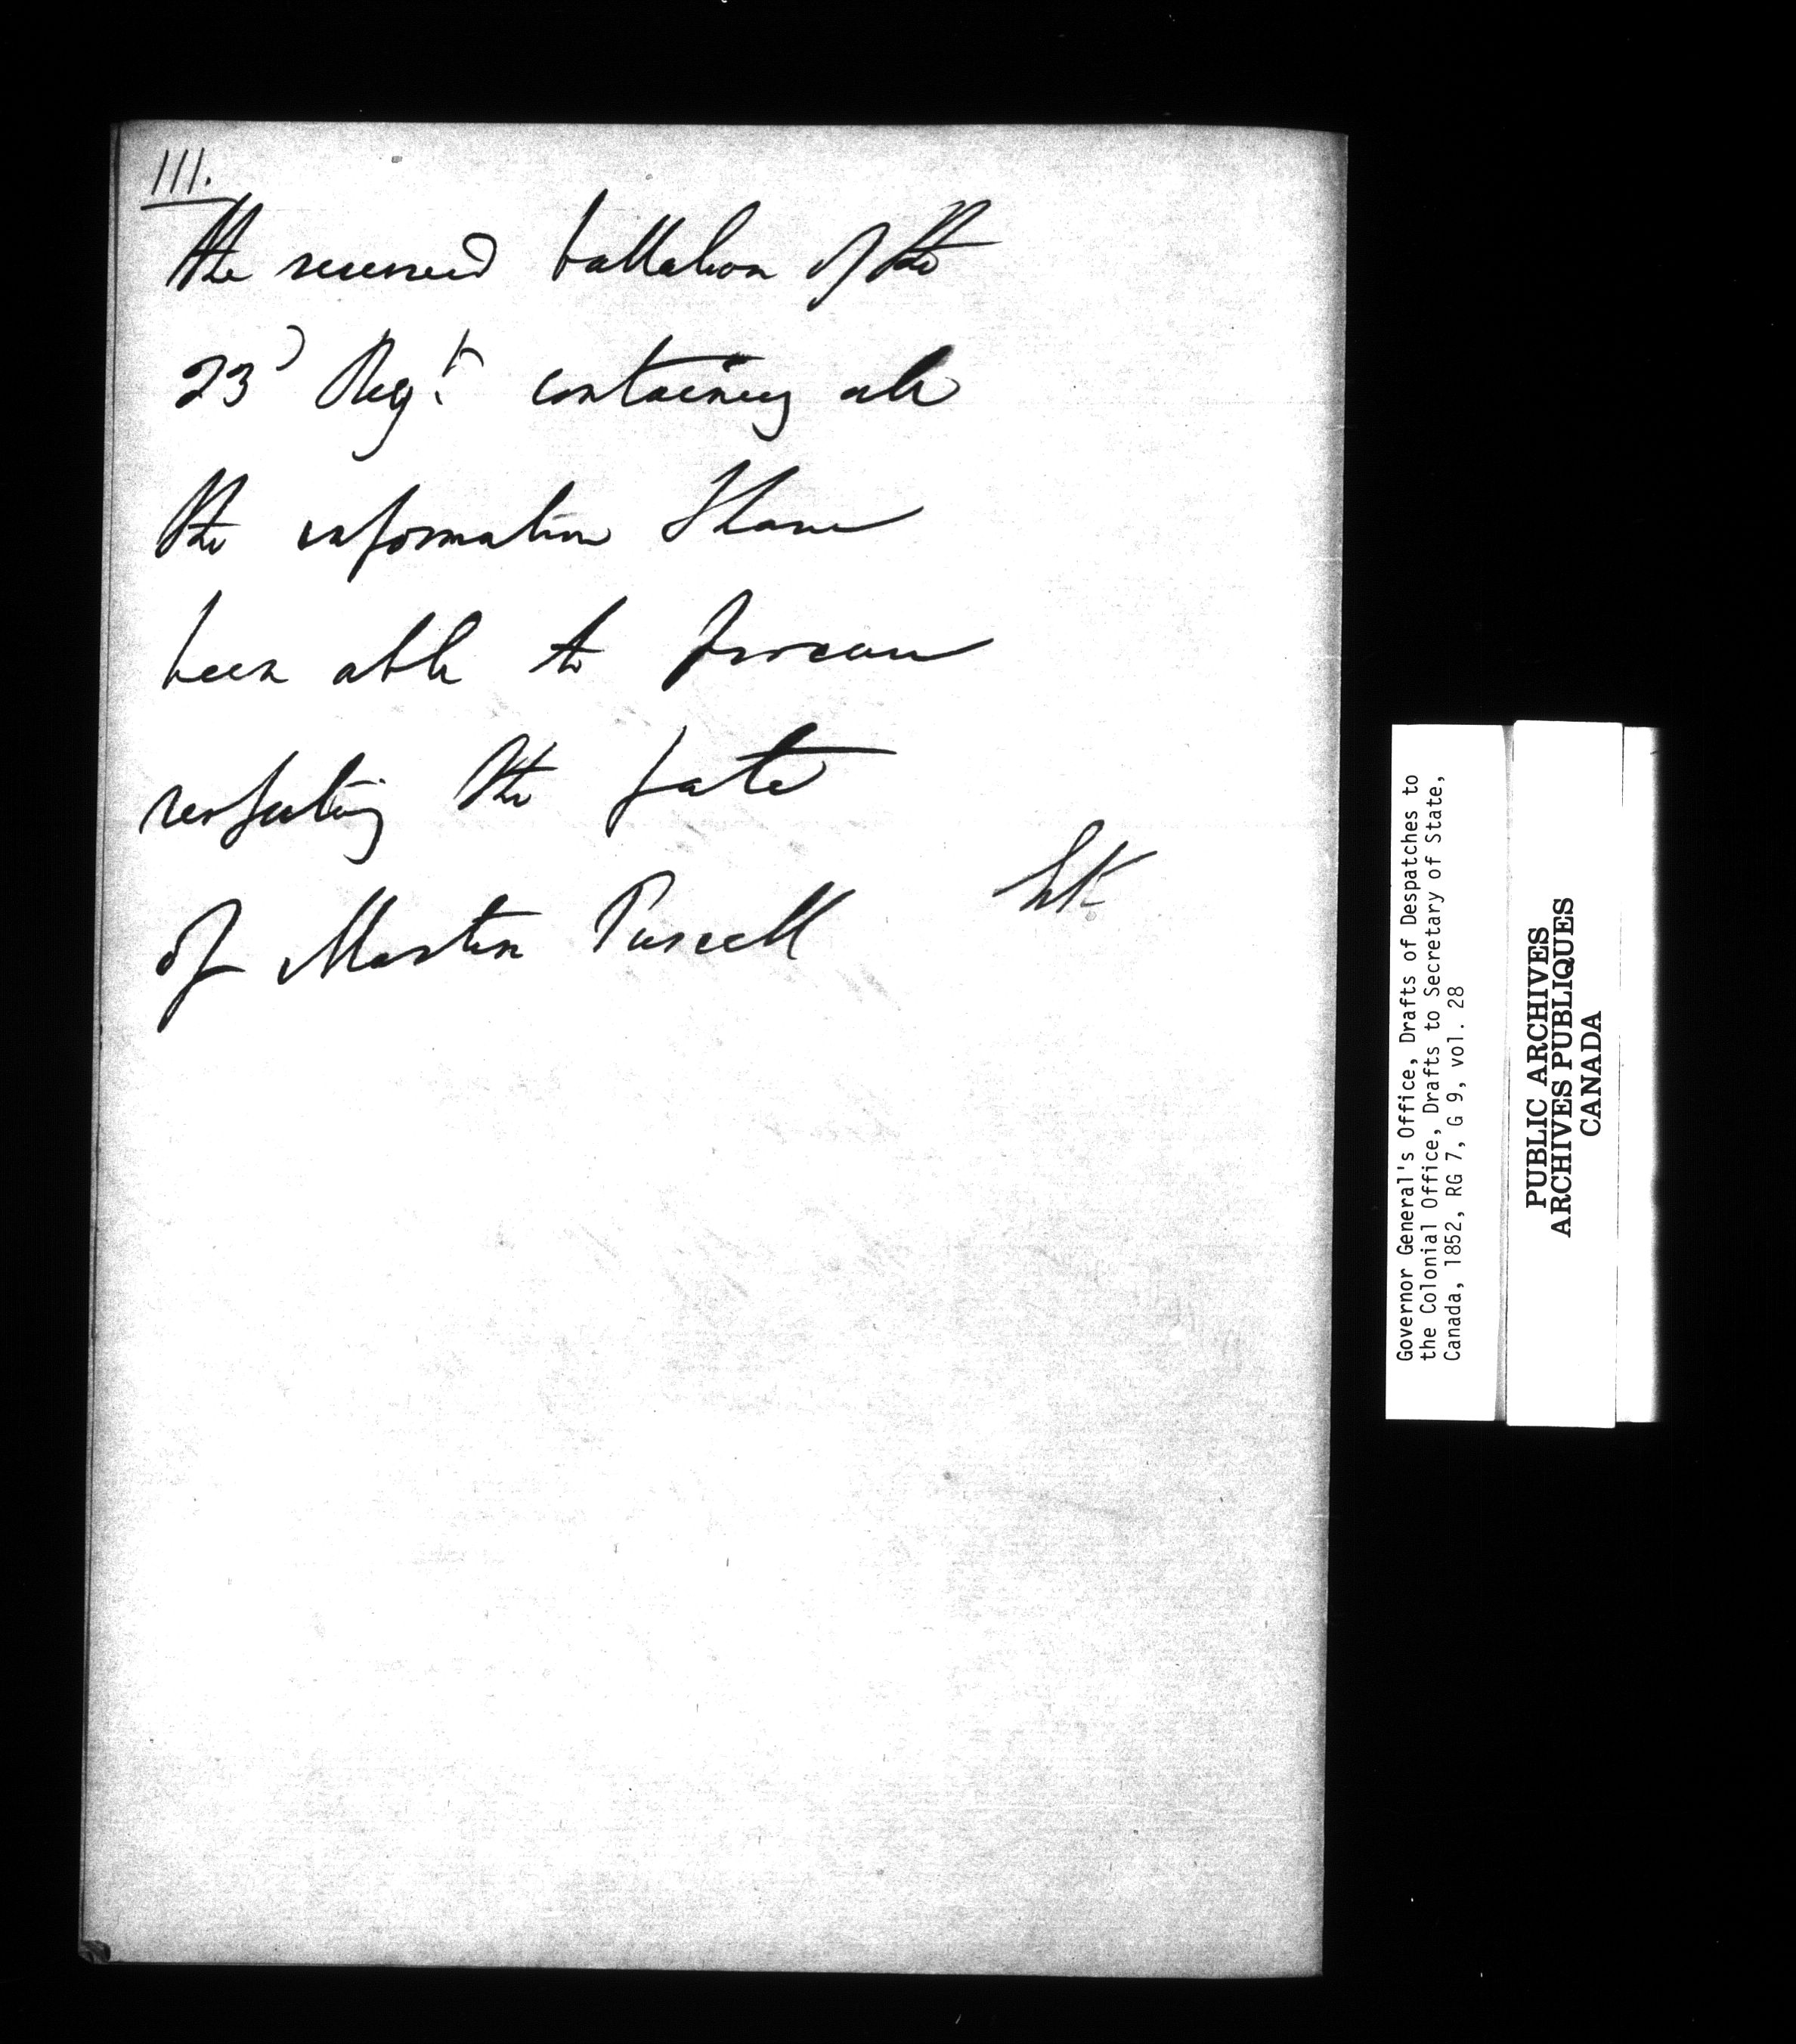 111.
the reserved battalion of the
23d Regt. containing all
the information I have
been able to procure
respecting the fate
of Martin Purcell
Governor General's Office, Drafts of Despatches to
the Colonial Office, Drafts to Secretary of State,
Canada, 1852, RG 7, G 9, vol. 28
PUBLIC ARCHIVES
ARCHIVES PUBLIQUES
CANADA